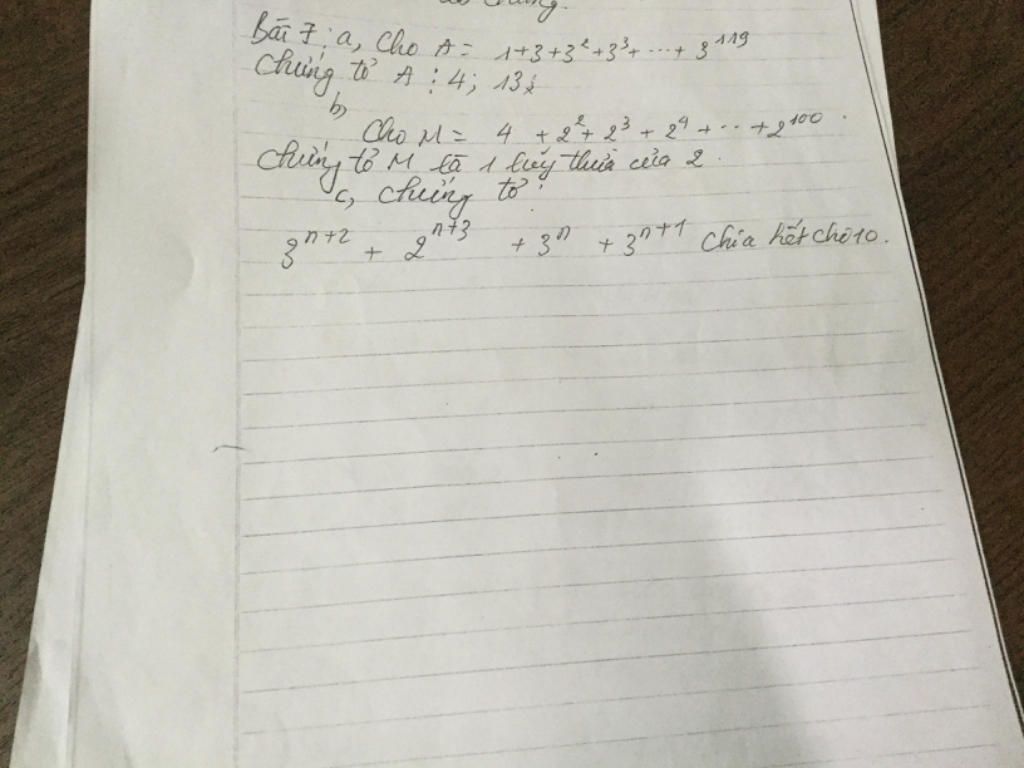 chung.
Bài 7: a, Cho A = 1+3+3²+3³+...+ 3¹¹⁹
Chứng tỏ A ⋮ 4; 13;
b,
Cho M = 4 + 2² + 2³ + 2⁴ + ... + 2¹⁰⁰.
Chứng tỏ M là 1 lũy thừa của 2.
c, Chứng tỏ:
3ⁿ⁺² + 2ⁿ⁺³ + 3ⁿ + 3ⁿ⁺¹ Chia hết cho 10.